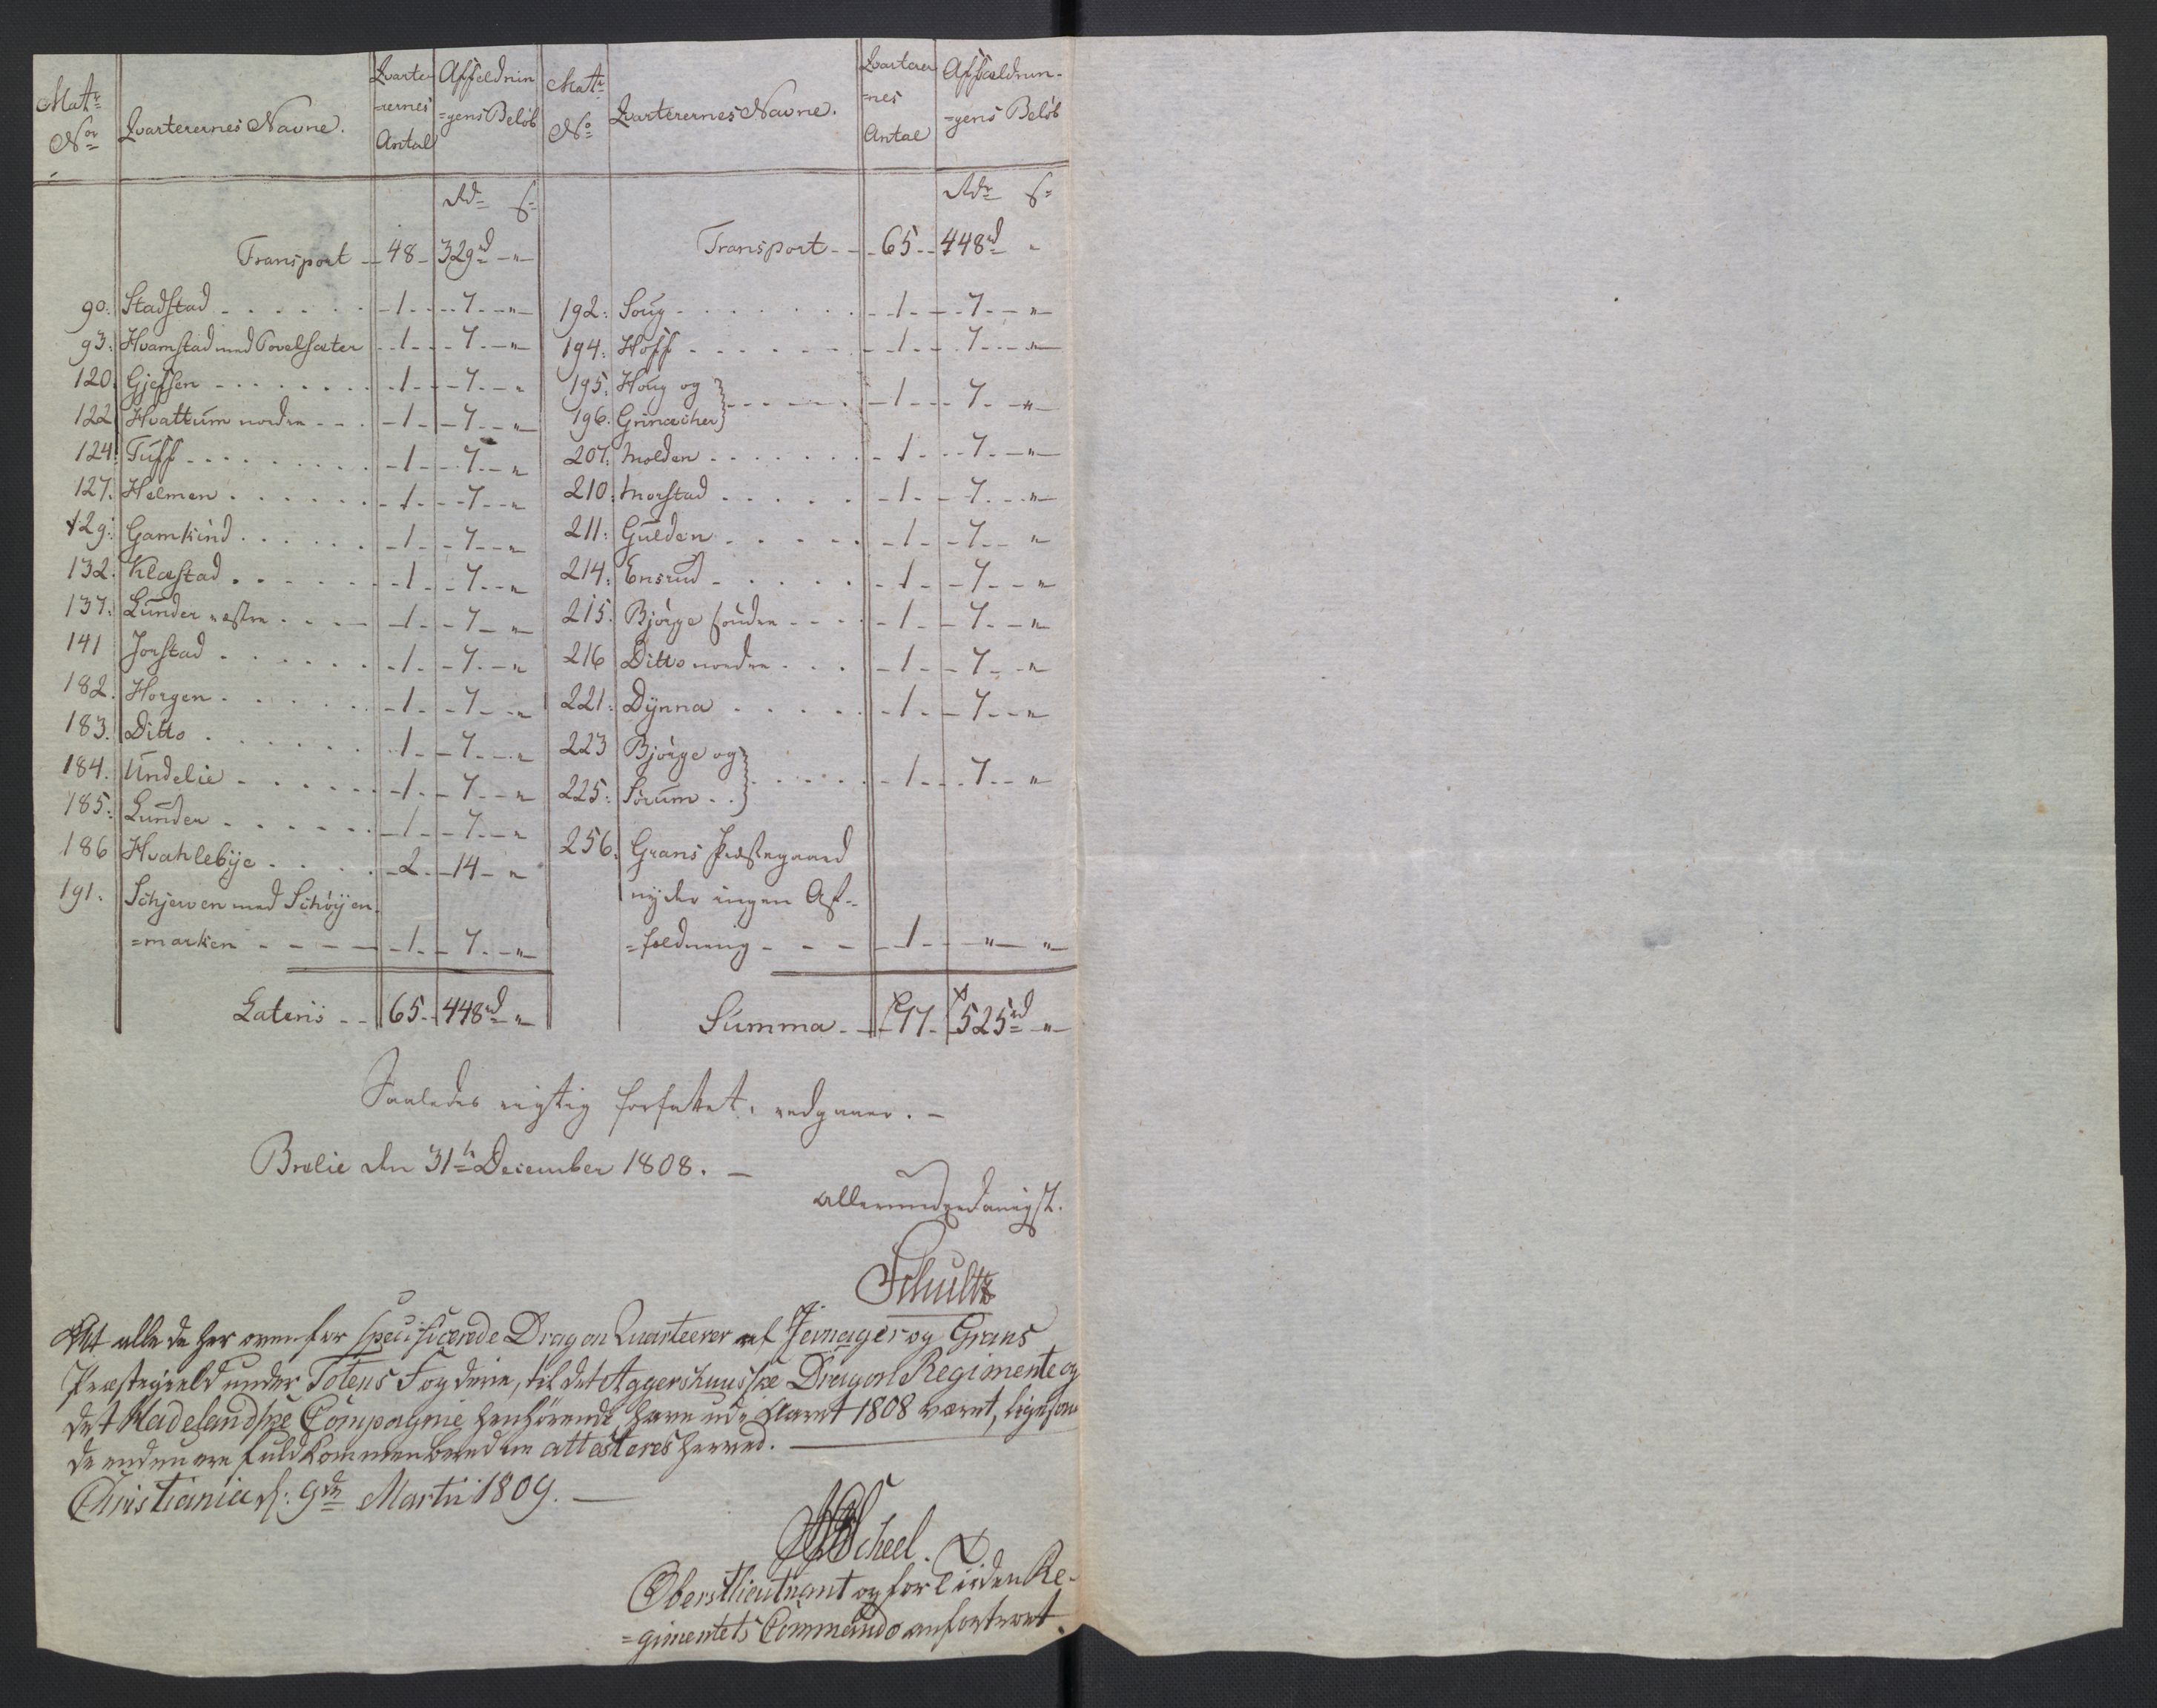 Matr Nor | Qvarterernes Navne. | Qvarte=rernes Antal | Affældnin=gens Beløb
Rd s
Transport - 48 - 329rd - "
90. Stadstad - 1 - 7 - "
93. Hvamstad med Povelsæter - 1 - 7 - "
120. Gjefsen - 1 - 7 - "
122 Hvattum nordre - 1 - 7 - "
124. Tuff - 1 - 7 - "
127. Helmen - 1 - 7 - "
129. Gamkind - 1 - 7 - "
132. Klæstad - 1 - 7 - "
137. Lunder østre - 1 - 7 - "
141 Jorstad - 1 - 7 - "
182. Horgen - 1 - 7 - "
183. Ditto - 1 - 7 - "
184. Undelie - 1 - 7 - "
185. Lunder - 1 - 7 - "
186 Hvahlebye - 2 - 14 - "
191. Schjerven med Schøyen
=marken - 1 - 7 - "
Lateris - 65 - 448rd "
Matr No | Qvarterernes Navne. | Qvarterer=nes Antal | Affældnin=gens Beløb
Rdr s
Transport - 65 - 448rd "
192. Soug - 1 - 7 - "
194. Hoff - 1 - 7 - "
195. Houg og
196. Grinacher } - 1 - 7 - "
207. Molden - 1 - 7 - "
210. Morstad - 1 - 7 - "
211. Gulden - 1 - 7 - "
214. Ensrud - 1 - 7 - "
215. Bjørge søndre - 1 - 7 - "
216 Ditto nordre - 1 - 7 - "
221. Dynna - 1 - 7 - "
223 Bjørge og
225. Sørum } - 1 - 7 - "
256. Grans Præstegaard
nyder ingen Af-
=fældning - 1 - " "
Summa - 77 - 525rd "
Saaledes rigtig forfattet, vedgaaer. -
Brelie den 31te December 1808. -
allerunderdanigst.
Schultz
At alle de her ovenfor specificerede Dragon Quarteerer af Jevnager og Grans
Præstegield under Totens Fogderie, til det Aggershuusske Dragon Regimente og
det Hadelandske Compagnie henhørende, have udi Aaret 1808 været, ligesom
de endnu ere fuldkommen beredne attesteres herved.
Christiania d: 9de Martii 1809. -
Scheel.
Oberstlieutnant og for Tiiden Re-
=gimentets Commando anfortroet.